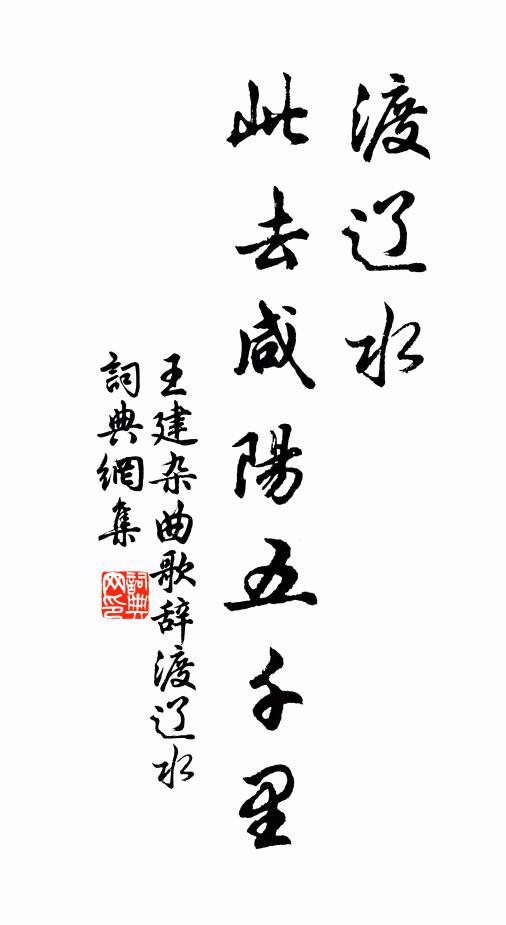 渡辽水
此去咸陽五千里
王建杂曲歌辞渡辽水
詞典網集
詞典
网印